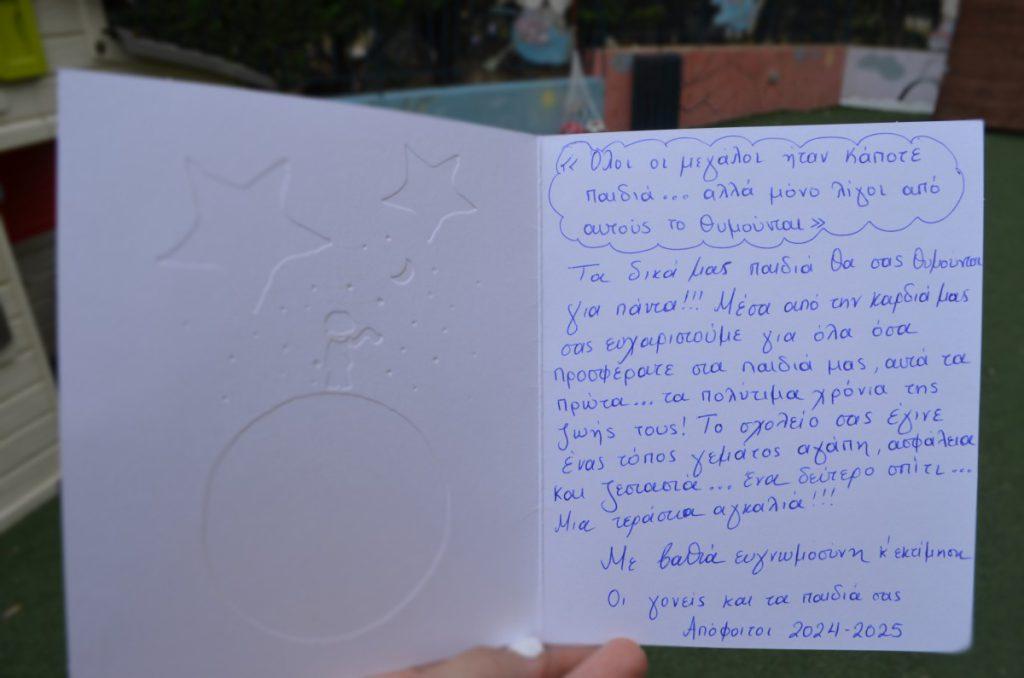 « Όλοι οι μεγάλοι ήταν κάποτε
παιδιά... αλλά μόνο λίγοι από
αυτούς το θυμούνται »
Τα δικά μας παιδιά θα σας θυμούνται
για πάντα!!! Μέσα από την καρδιά μας
σας ευχαριστούμε για όλα όσα
προσφέρατε στα παιδιά μας, αυτά τα
πρώτα... τα πολύτιμα χρόνια της
ζωής τους! Το σχολείο σας έγινε
ένας τόπος γεμάτος αγάπη, ασφάλεια
και ζεστασιά... ένα δεύτερο σπίτι...
Μια τεράστια αγκαλιά!!!
Με βαθιά ευγνωμοσύνη κ' εκτίμηση
Οι γονείς και τα παιδιά σας
Απόφοιτοι 2024-2025